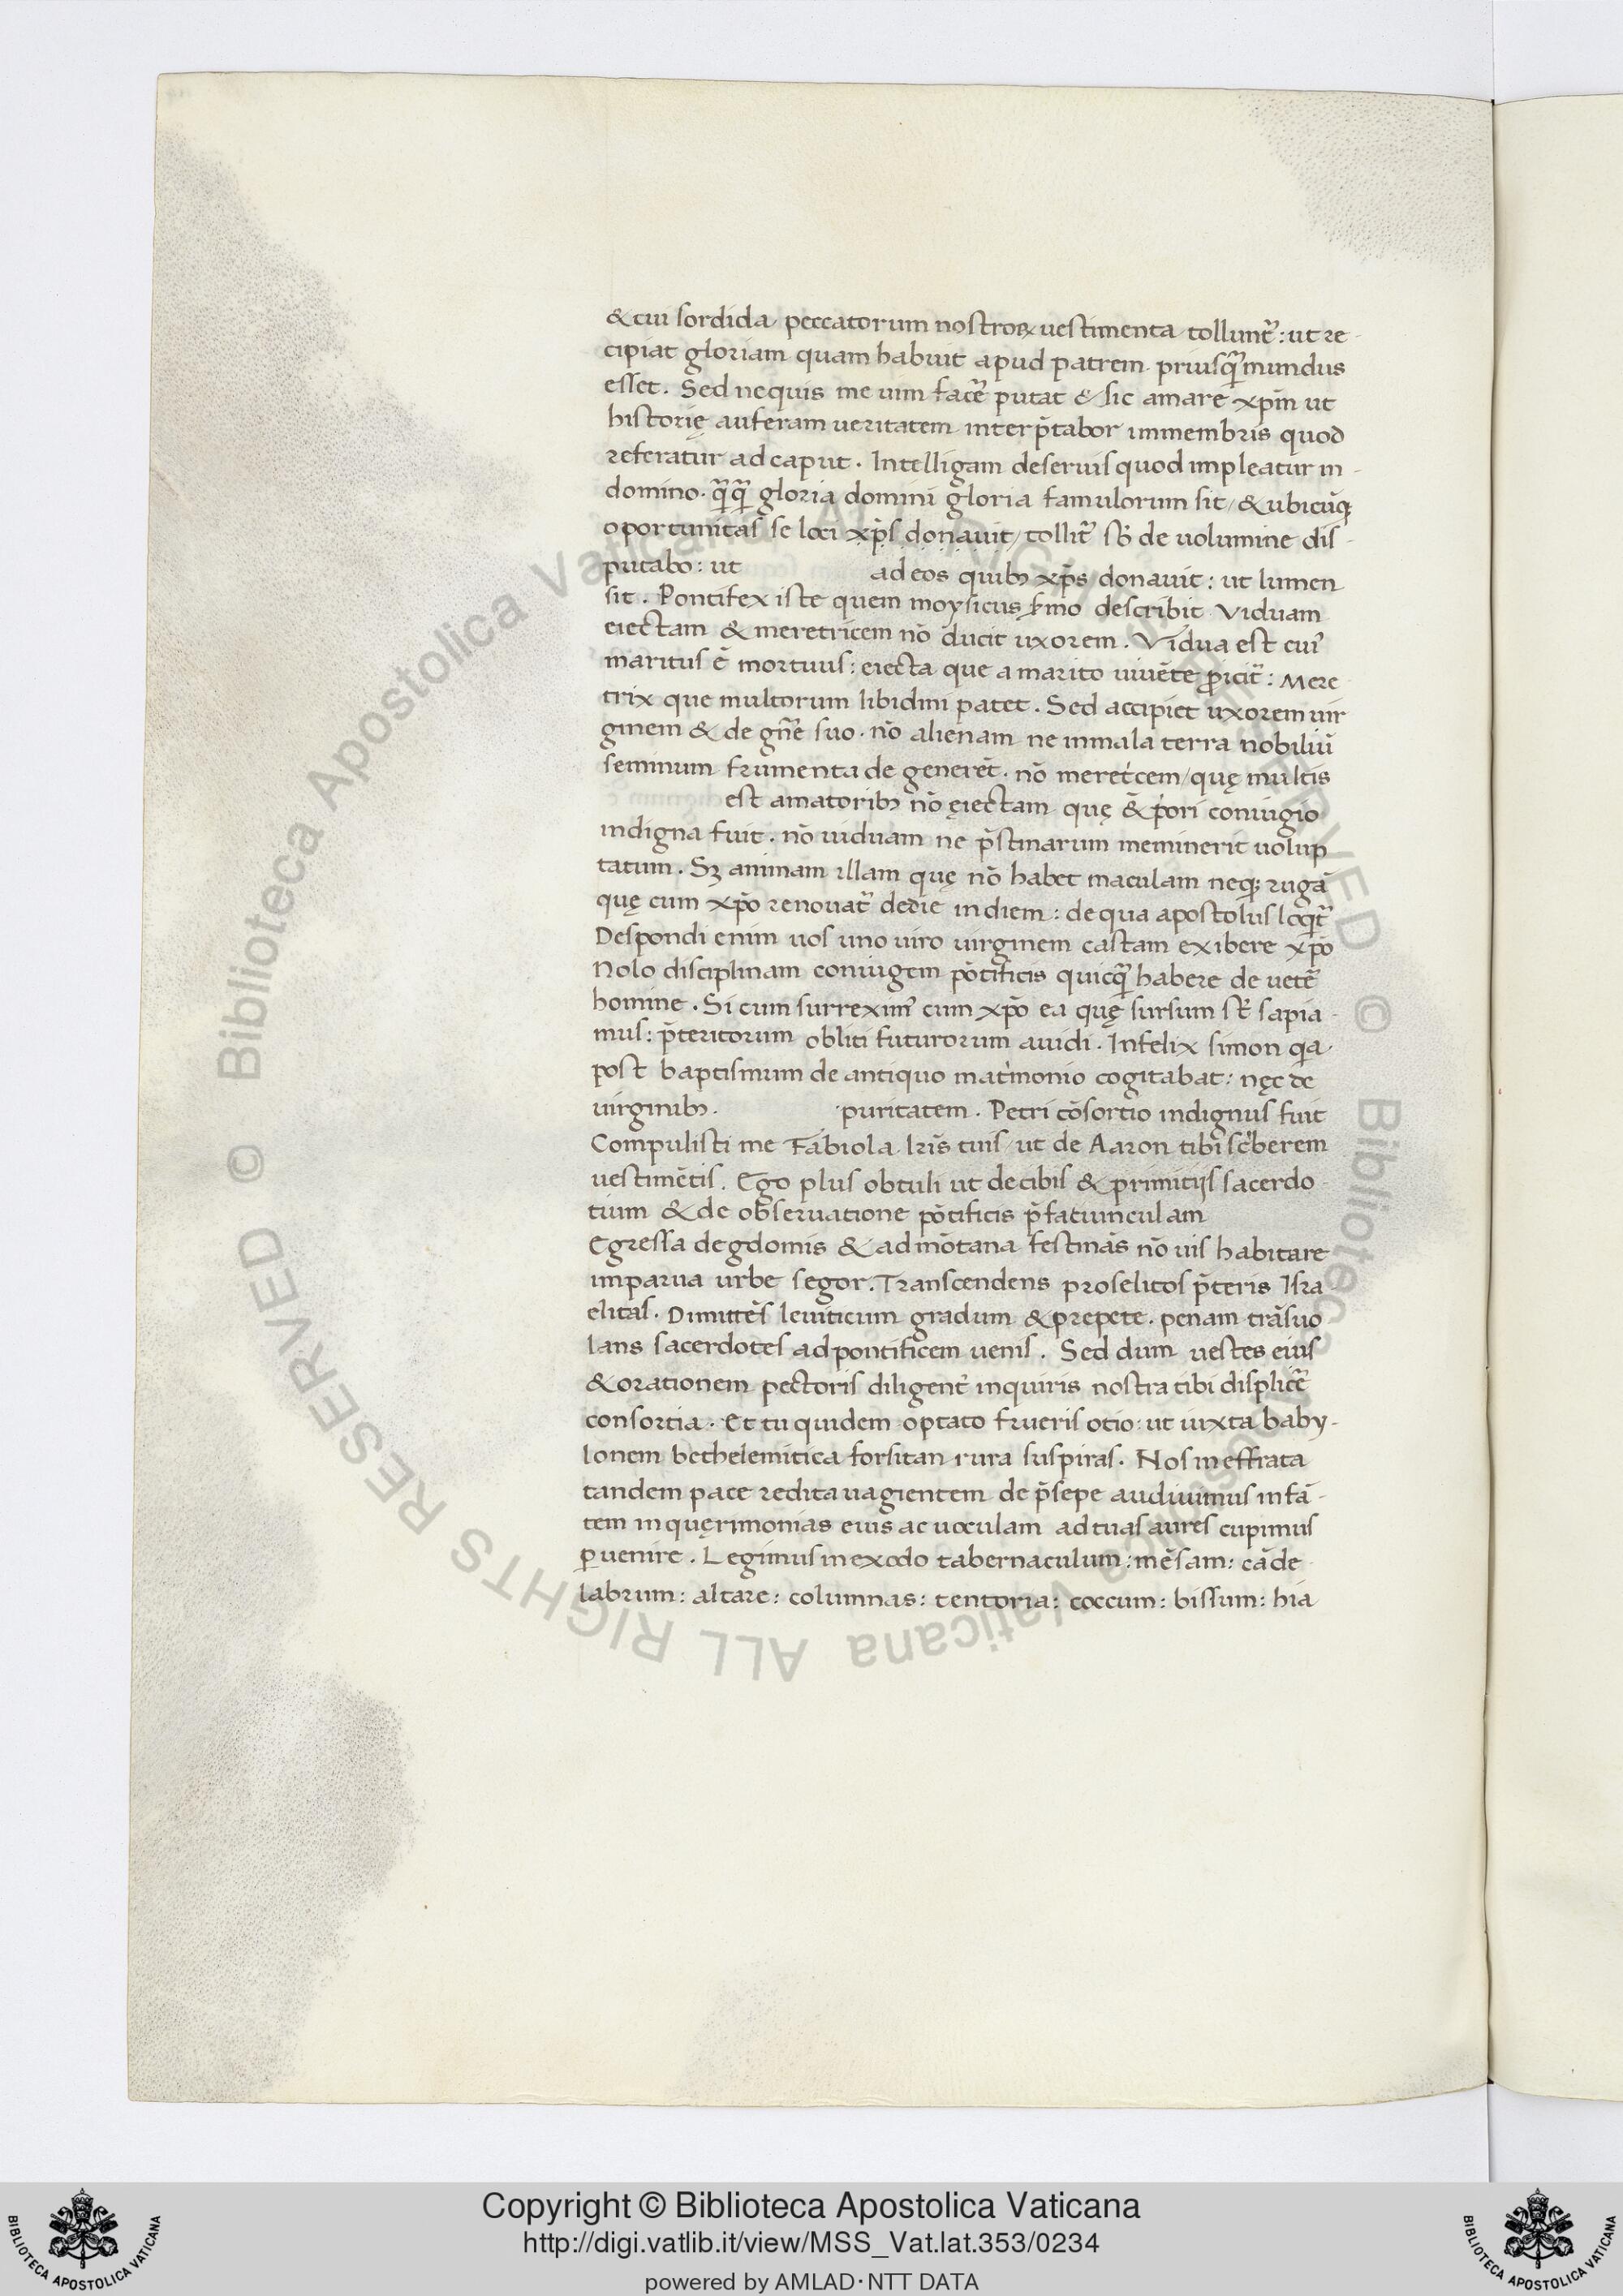 &cui sordida peccatorum nostroꝝ uestimenta tollunt᷑: ut re-
cipiat gloriam quam habuit apud patrem priusq̄mundus
esset. Sed nequis me uim facē putat & sic amare xp̄m ut
historię auferam ueritatem interp̄tabor immembris quod
referatur ad caput. Intelligam deseruis quod impleatur in-
domino. q̄q̄ gloria domini gloria famulorum sit/ &ubicūq;
oportunitas se loci xp̄s donauit/ tollit᷑ sb̄ de uolumine dis-
putabo: ut ad eos quibꝫ xp̄s donauit: ut lumen
sit. Pontifex iste quem moysicus ẜmo describit Viduam
eiectam & meretricem nō ducit uxorem. Vidua est cui᷒
maritus ē mortuus: eiecta que amarito uiuēte ꝓicit᷑: Mere
trix que multorum libidini patet. Sed accipiet uxorem uir
ginem & de gn̄e suo. nō alienam ne inmala terra nobiliū
seminum frumenta de generēt. nō meret͛cem/ quę multis
est amatoribꝫ nō ęiectam quę & p͛ori coniugio
indigna fuit. nō uiduam ne p̄stinarum meminerit uolup
tatum. Sꝫ animam illam quę nō habet maculam neq; rugā
quę cum xp̄o renouat᷑ dedie indiem: dequa apostolus loqt᷑
Despondi enim uos uno uiro uirginem castam exibere xp̄o
Nolo disciplinam coniugem pōtificis quicq̄ habere de uetē
homine. Si cum surrexim᷒ cum xp̄o ea quę sursum st̄ sapia-
mus: p̄teritorum obliti futurorum auidi. Infelix simon qa
post baptismum de antiquo mat͛monio cogitabat: nęc de
uirginibꝫ. puritatem. Petri cōsortio indignus fuit
Compulisti me Fabiola lr̄is tuis/ ut de Aaron tibi sc͛berem
uestimētis. Ego plus obtuli ut decibis & primitijs sacerdo
tium & de obseruatione pōtificis p̄fatiunculam
Egressa degdomis & admōtana festinās nō uis habitare
inparua urbe segor. Transcendens proselitos p̄teris Isra
elitas. Dimittēs leuiticum gradum & prepete. penam trāsuo
lans sacerdotes ad pontificem uenis. Sed dum uestes eius
&orationem pectoris diligent᷑ inquiris nostra tibi displicē
consortia. Et tu quidem optato frueris otio: ut iuxta baby-
lonem bethelemitica forsitan rura suspiras. Nos in effrata
tandem pace redita uagientem de p̄sepe audiuimus infā-
tem in quęrimonias eius ac uoculam ad tuas aures cupimus
ꝑuenire. Legimus in exodo tabernaculum: mēsam: cāde
labrum: altare: columnas: tentoria: coccum: bissum: hia
© Biblioteca Apostolica Vaticana ALL RIGHTS RESERVED © Biblioteca Apostolica Vaticana ALL RIGHTS RESERVED
Copyright © Biblioteca Apostolica Vaticana
http://digi.vatlib.it/view/MSS_Vat.lat.353/0234
powered by AMLAD·NTT DATA
BIBLIOTECA APOSTOLICA VATICANA
BIBLIOTECA APOSTOLICA VATICANA